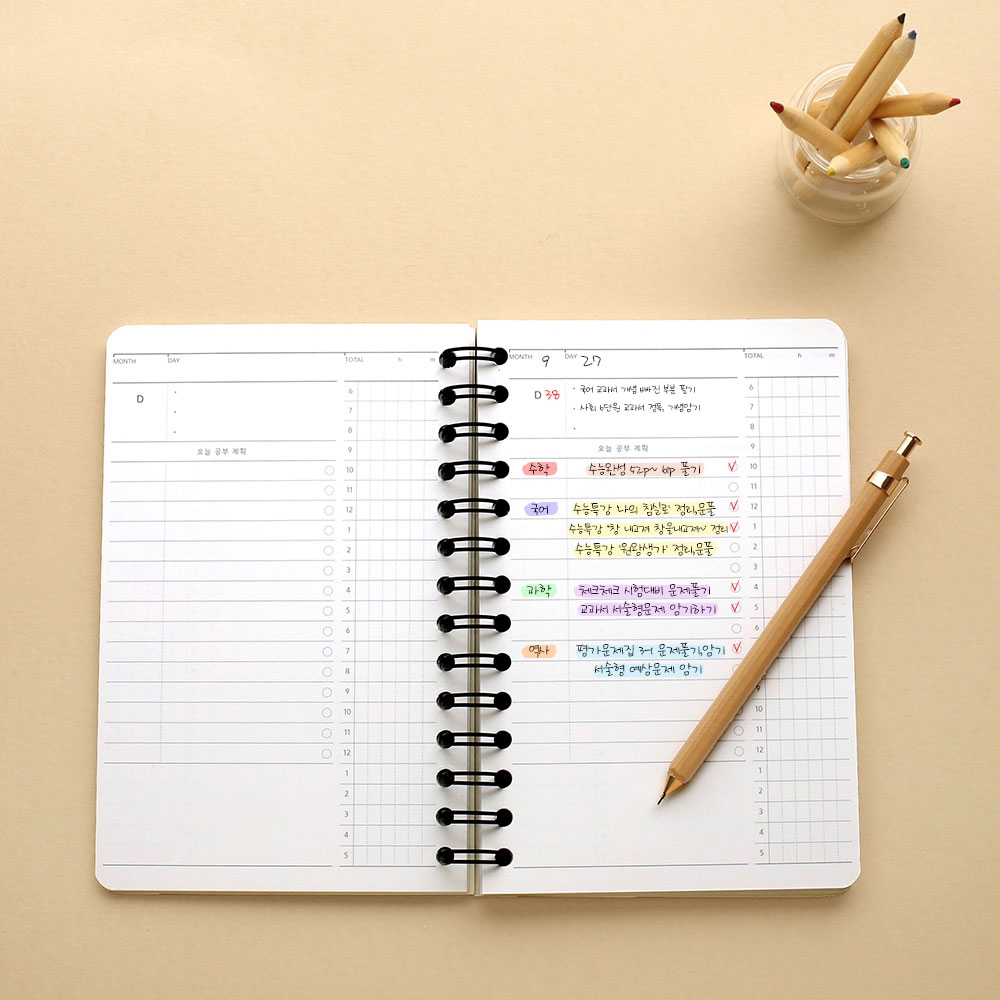 MONTH DAY TOTAL h m
D
오늘 공부 계획
6
7
8
9
10
11
12
1
2
3
4
5
6
7
8
9
10
11
12
1
2
3
4
5
MONTH 9 DAY 27 TOTAL h m
D 38
· 국어 교과서 개념 빠진 부분 필기
· 사회 6단원 교과서 정독, 개념암기
오늘 공부 계획
수학 수능완성 52p~ 61p 풀기
국어 수능특강 '나의 침실로' 정리,문풀
수능특강 '창 내고쟈 창을내고쟈~' 정리
수능특강 '원왕생가' 정리,문풀
과학 체크체크 시험대비 문제풀기
교과서 서술형문제 암기하기
역사 평가문제집 3-1 문제풀기,암기
서술형 예상문제 암기
6
7
8
9
10
11
12
1
2
3
4
5
6
7
9
12
1
2
3
4
5